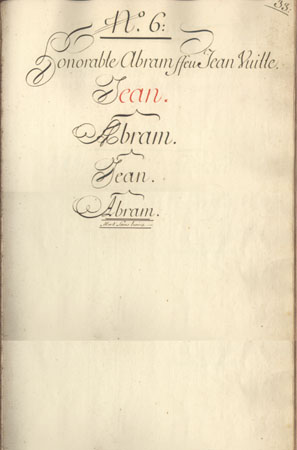 33.
N.° 6:
Honorable Abram ffeu Jean Vuille.
Jean.
Abram.
Jean.
Abram.